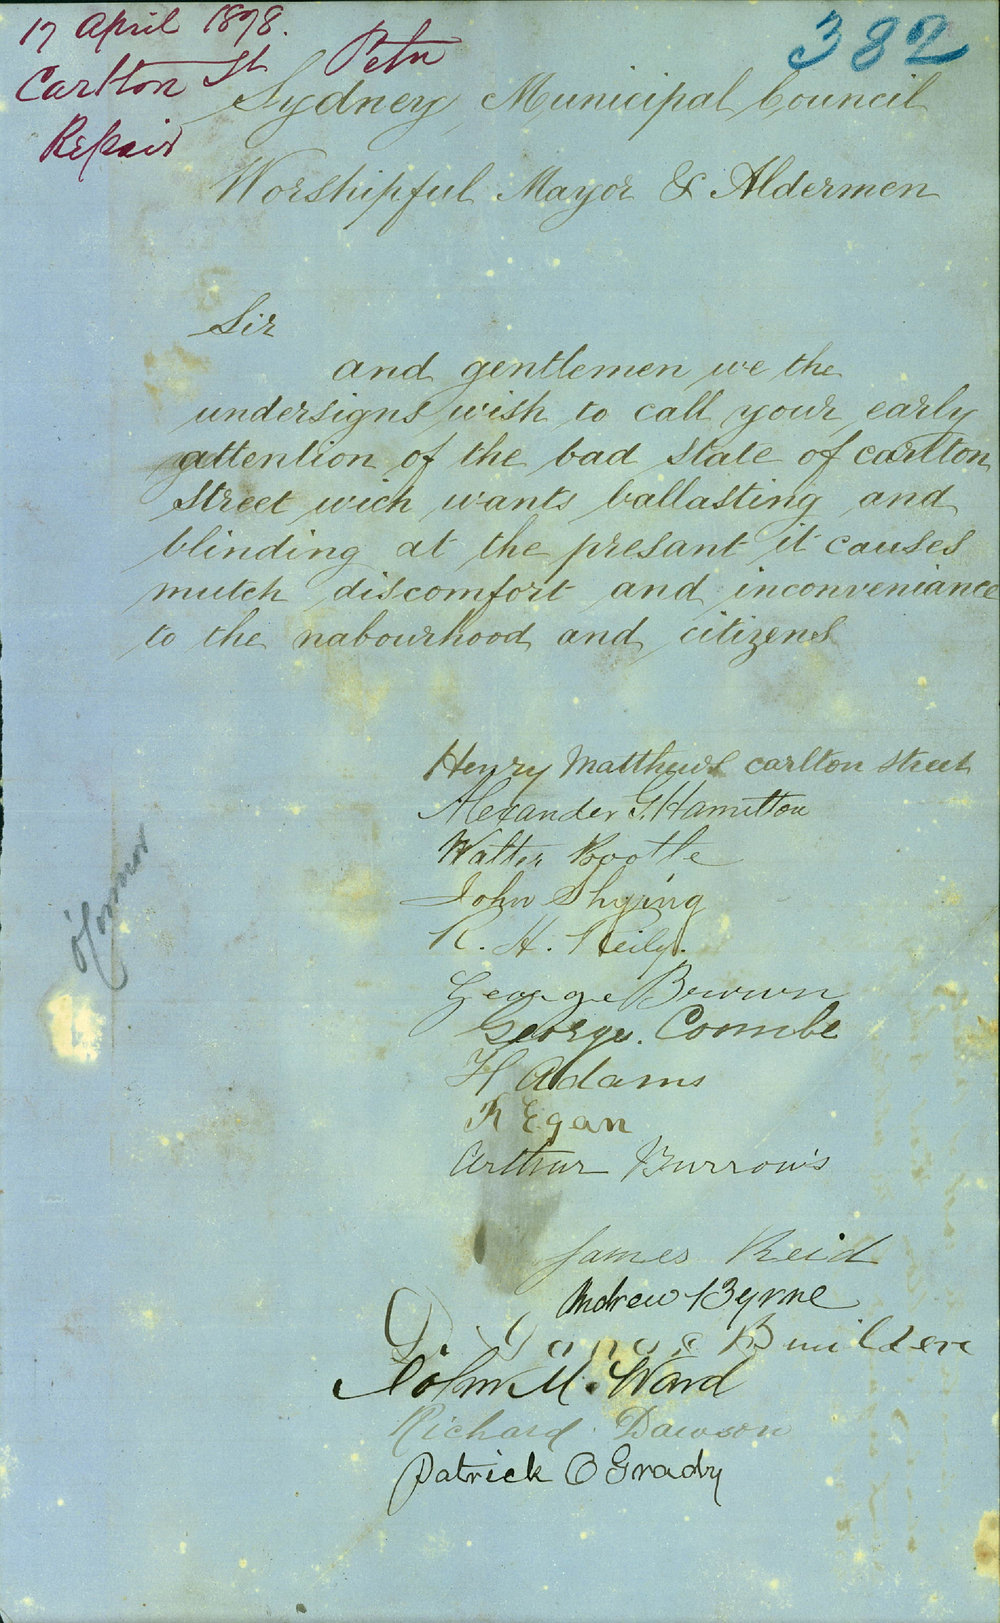 17 April 1878.
Carlton St Petn
Repair
382
Sydney Municipal Council
Worshipful Mayor & Aldermen
Sir
and gentlemen we the
undersigns wish to call your early
attention of the bad state of carlton
street wich wants ballasting and
blinding at the presant it causes
mutch discomfort and inconveniance
to the nabourhood and citizens
Henry Matthews carlton street
Alexander G. Hamilton
Walter Bootle
John Shying
R. H. Reily.
George Brown
George. Coombe
H Adams
Egan
Arthur Burrows
O'Connor
James Reid
Andrew Byrne
D. Jones Builder
John M. Ward
Richard Dawson
Patrick O Grady